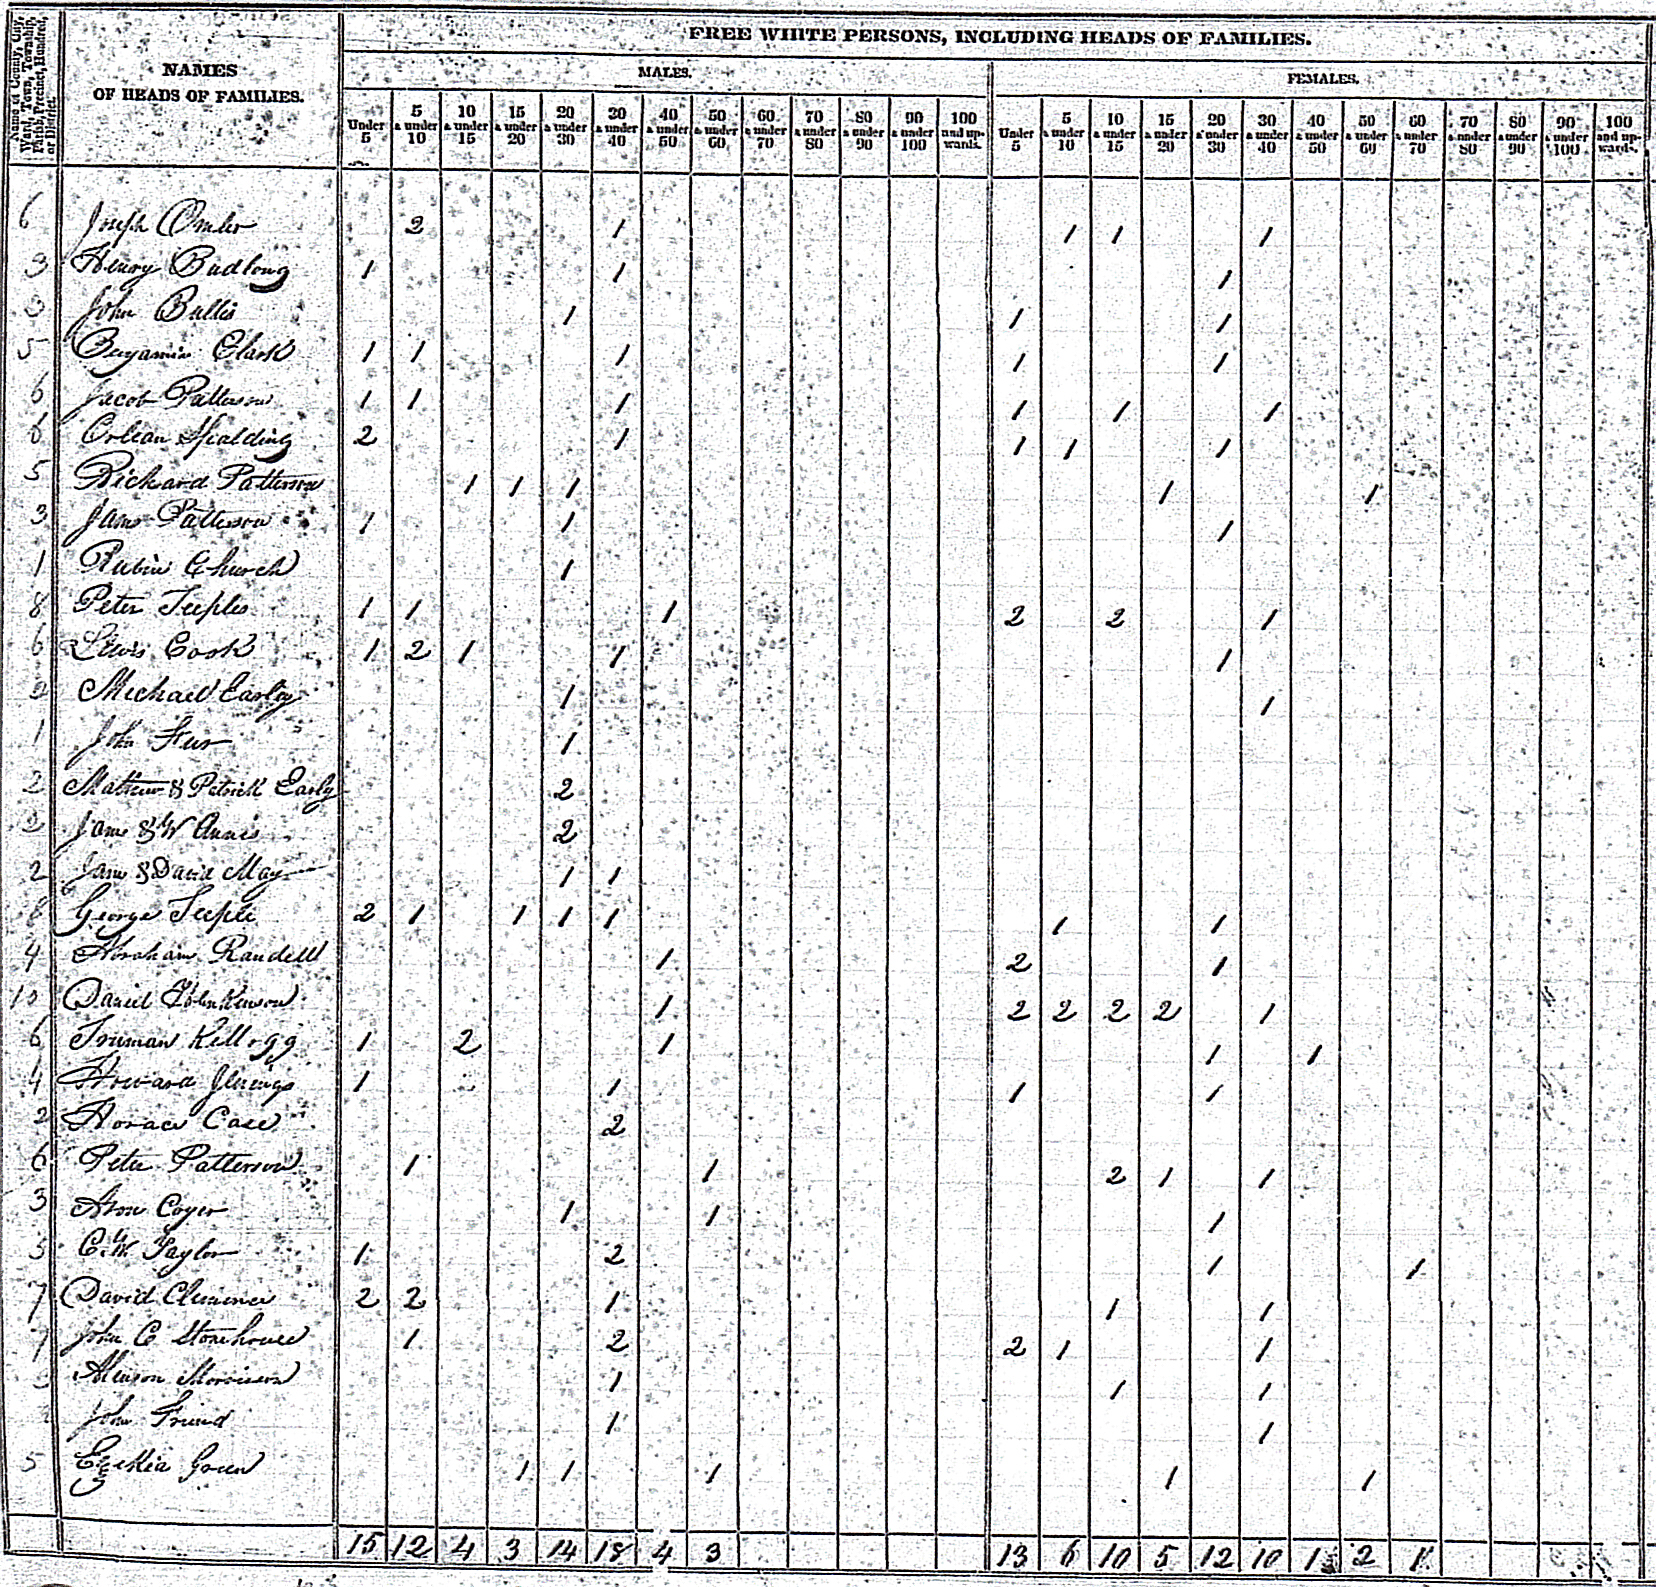 Name of County, City, Ward, Town, Township, Parish, Precinct, Hundred, or District.
NAMES OF HEADS OF FAMILIES.
FREE WHITE PERSONS, INCLUDING HEADS OF FAMILIES.
MALES. FEMALES.
Under 5 5 & under 10 10 & under 15 15 & under 20 20 & under 30 30 & under 40 40 & under 50 50 & under 60 60 & under 70 70 & under 80 80 & under 90 90 & under 100 100 and upwards. Under 5 5 & under 10 10 & under 15 15 & under 20 20 & under 30 30 & under 40 40 & under 50 50 & under 60 60 & under 70 70 & under 80 80 & under 90 90 & under 100 100 and upwards.
6 Joseph 2 1 1 1 1
3 Henry Budlong 1 1 1
3 John Bullis 1 1 1
5 Benjamin Clark 1 1 1 1 1
6 Jacob Patterson 1 1 1 1 1 1
6 Orlean Spalding 2 1 1 1 1
5 Richard Patterson 1 1 1 1 1
3 James Patterson 1 1 1
1 Rubin Church 1
8 Peter Teeples 1 1 1 2 2 1
6 Lewis Cook 1 2 1 1 1
2 Michael Early 1 1
1 John 1
2 Mathew & Patrick Early 2
2 James & W Annis 2
2 James & David May 1 1
8 George Teeple 2 1 1 1 1 1 1
4 Abraham Randell 1 2 1
10 Daniel 1 2 2 2 2 1
6 Truman Kellogg 1 2 1 1 1
4 Howard Jenings 1 1 1 1
2 Horace Case 2
6 Peter Patterson 1 1 2 1 1
3 Coyer 1 1 1
5 C. W. Taylor 1 2 1 1
7 David Clemence 2 2 1 1 1
7 John C Stonehouse 1 2 2 1 1
3 Morrison 1 1 1
John Friend 1 1
5 Green 1 1 1 1 1
15 12 4 3 14 18 4 3 13 6 10 5 12 10 1 2 1